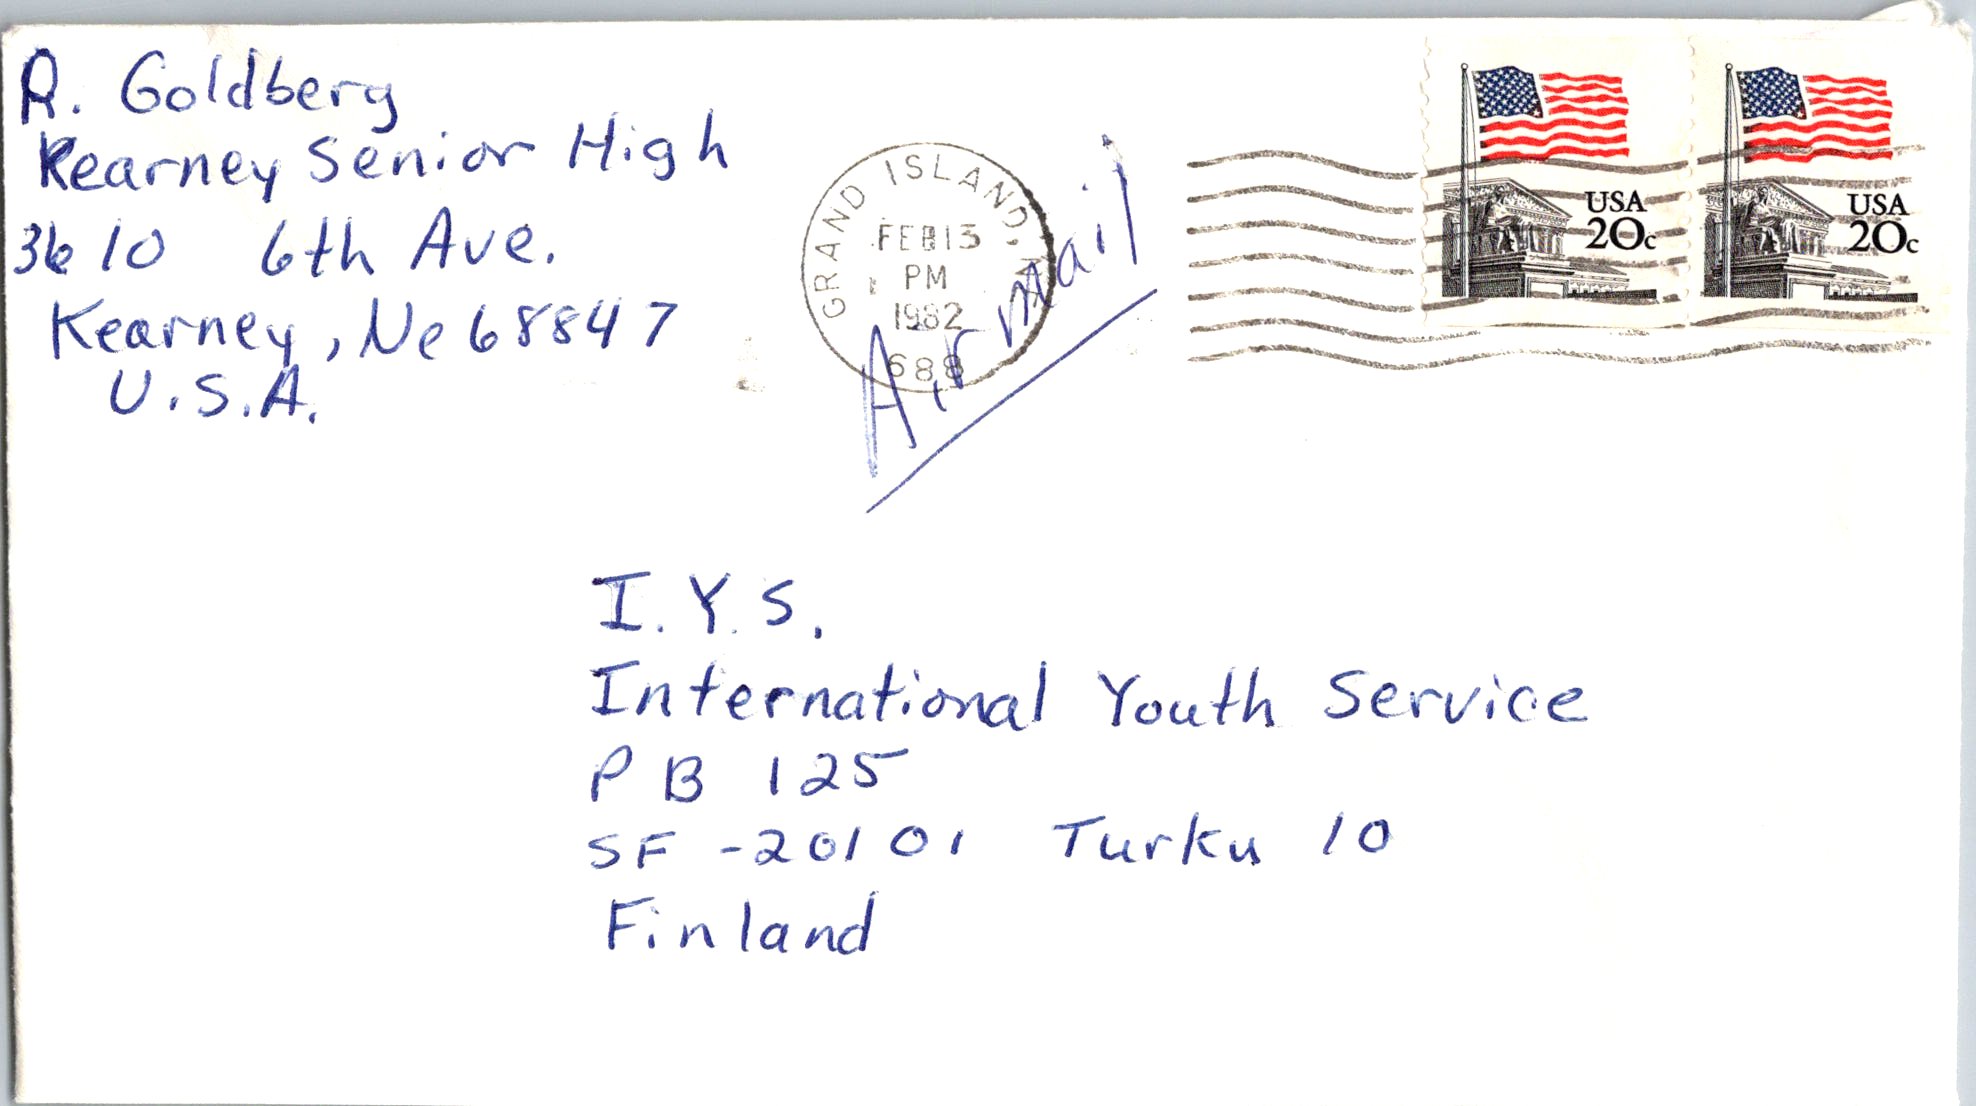 R. Goldberg
Kearney Senior High
3610 6th Ave.
Kearney, Ne 68847
U.S.A.
GRAND ISLAND, N
FEB 13
PM
1982
688
Airmail
USA
20c
USA
20c
I.Y.S.
International Youth Service
PB 125
SF -20101 Turku 10
Finland